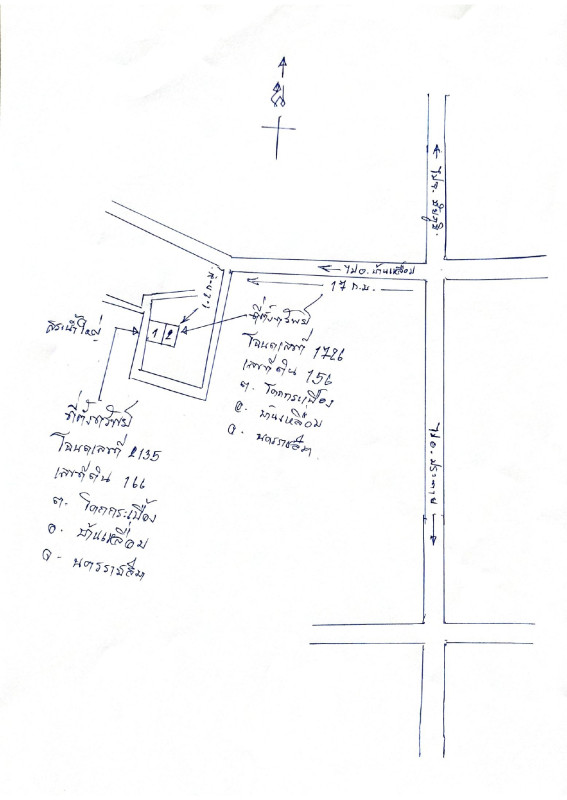 น
ไป จ. ชัยภูมิ
ไป อ. บ้านเหลื่อม
17 ก.ม.
1.2 ก.ม.
สระน้ำใหญ่
1 2
ที่ตั้งทรัพย์
โฉนดเลขที่ 1726
เลขที่ดิน 156
ต. โคกกระเบื้อง
อ. บ้านเหลื่อม
จ. นครราชสีมา
ที่ตั้งทรัพย์
โฉนดเลขที่ 2135
เลขที่ดิน 166
ต. โคกกระเบื้อง
อ. บ้านเหลื่อม
จ. นครราชสีมา